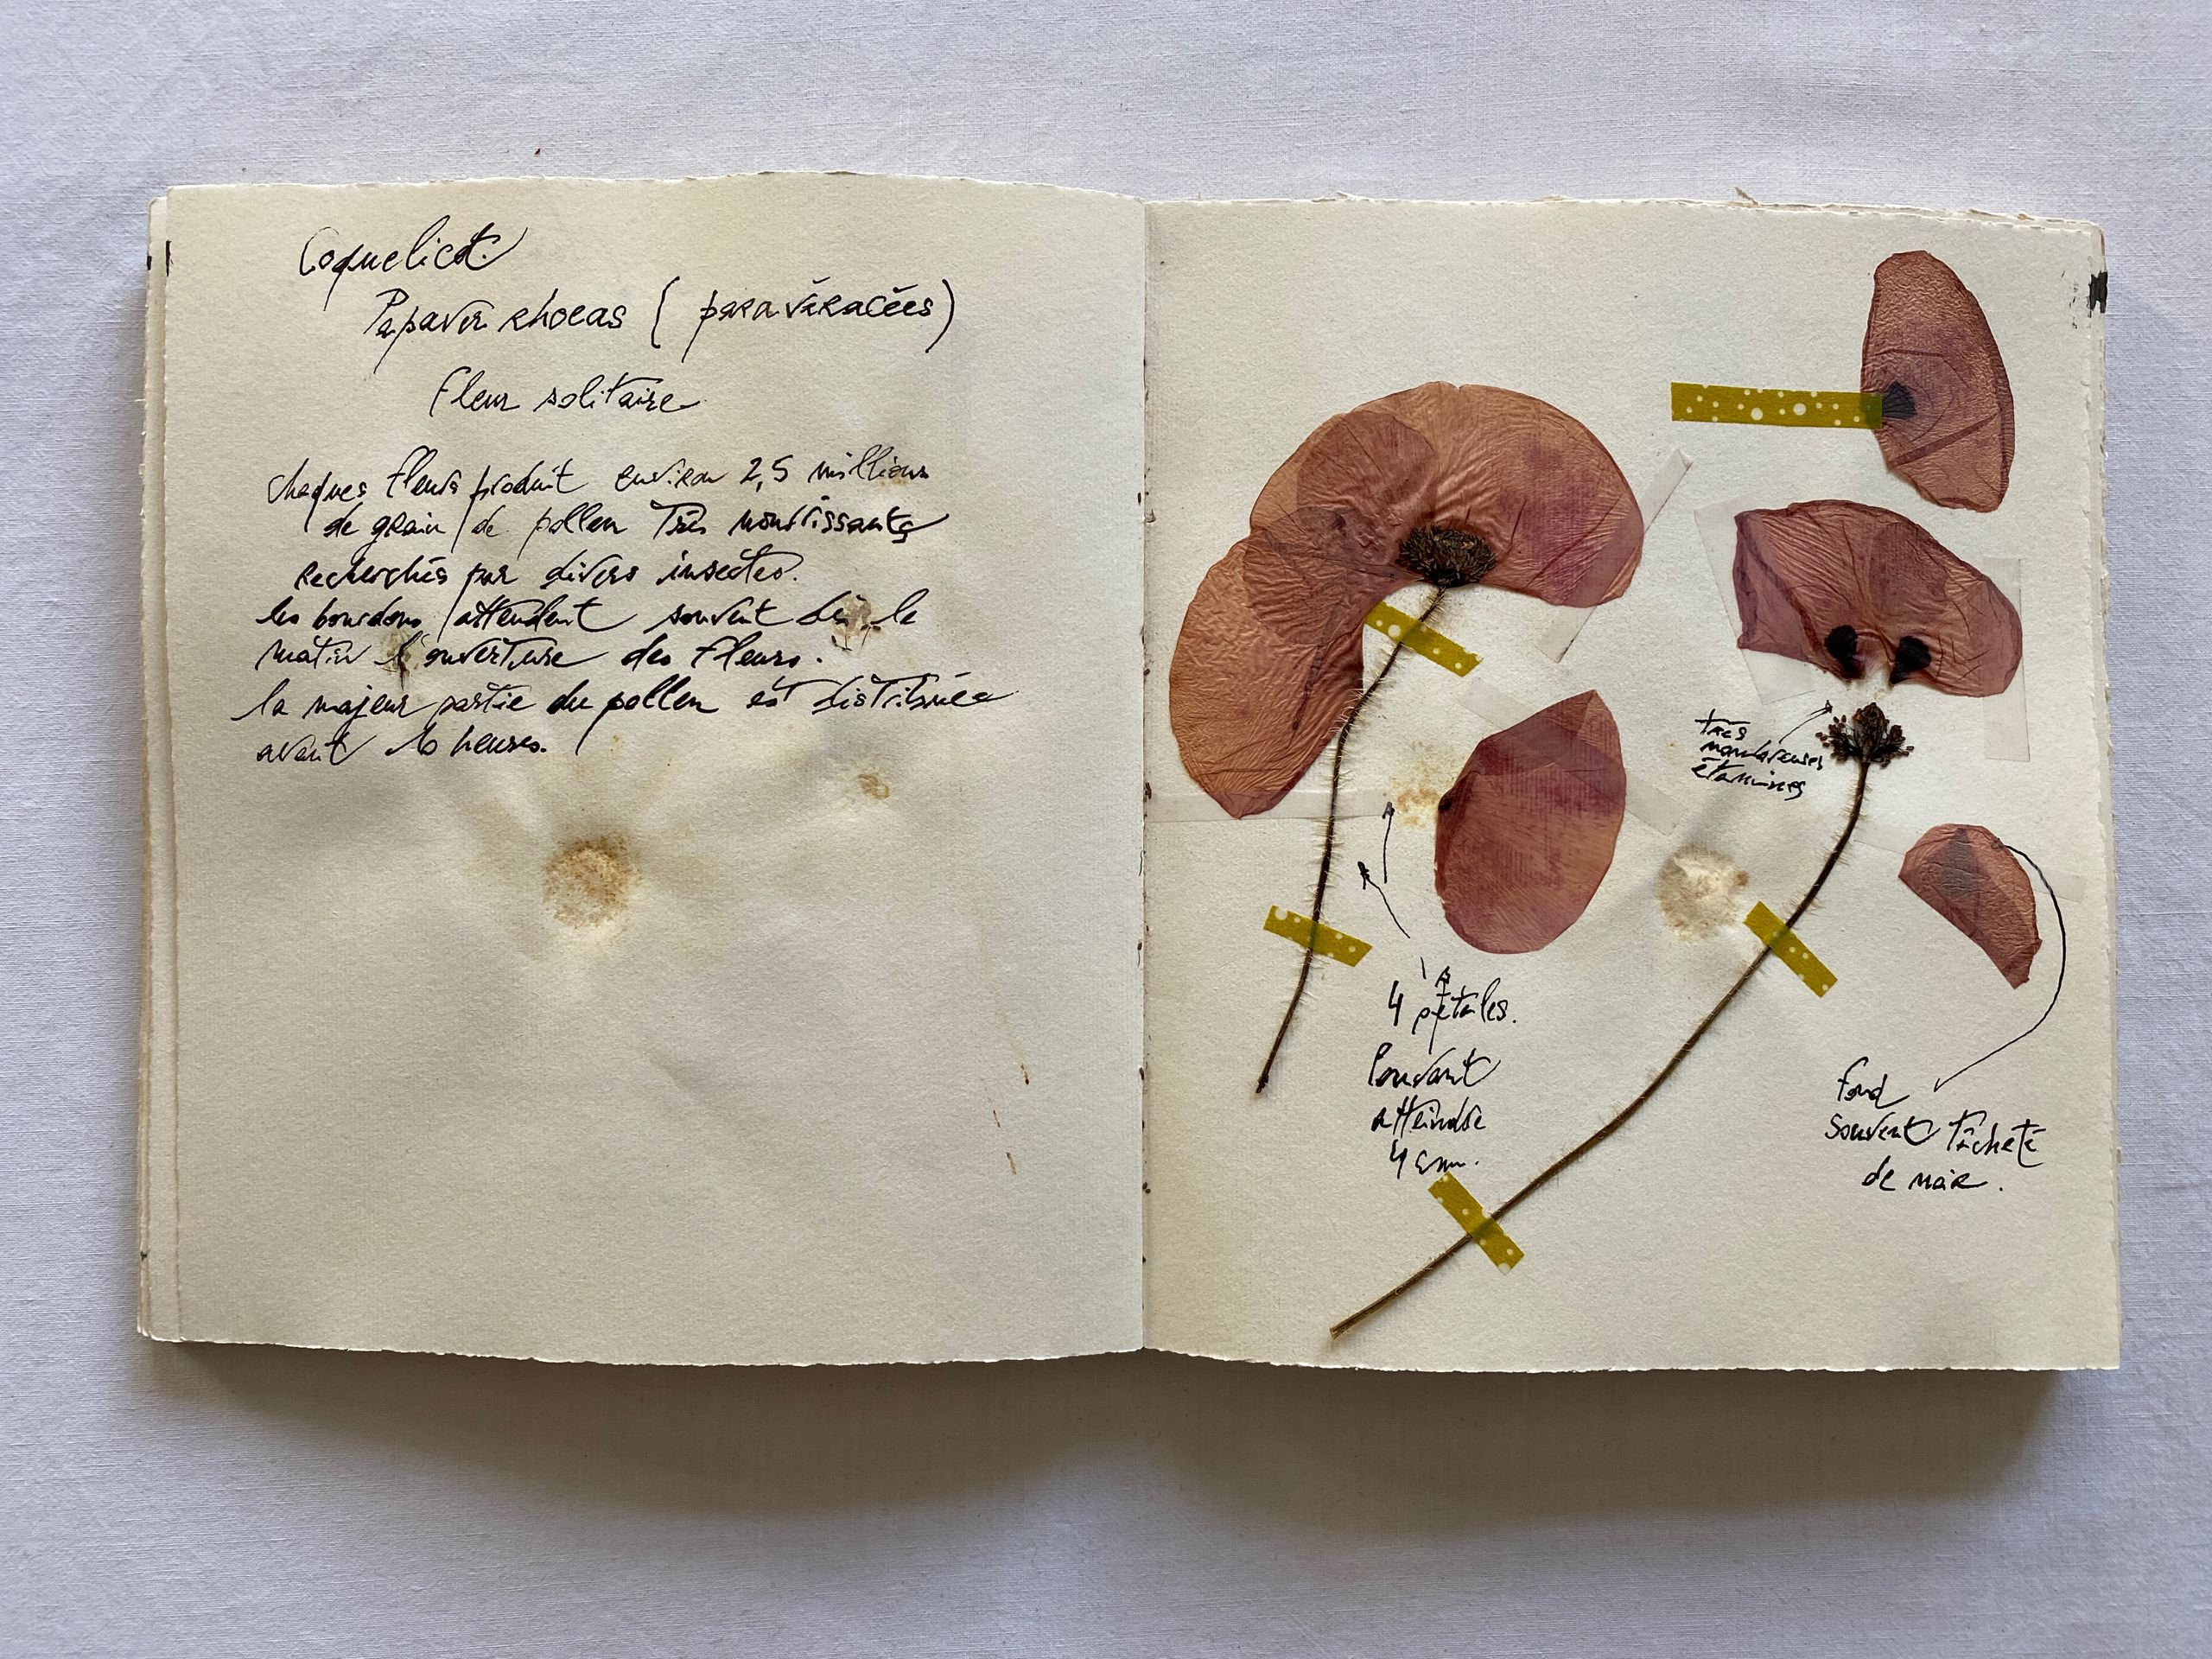 Coquelicot
Papaver rhoeas (papavéracées)
fleur solitaire
chaques fleurs produit environ 2,5 millions
de grain de pollen Très nourrissants
recherchés par divers insectes.
les bourdons attendent souvent dès le
matin l'ouverture des fleurs.
la majeur partie du pollen est distribuée
avant 10 heures.
très
nombreuses
étamines
4 pétales.
Pouvant
atteindre
4 cm.
fond
souvent tâcheté
de noir.